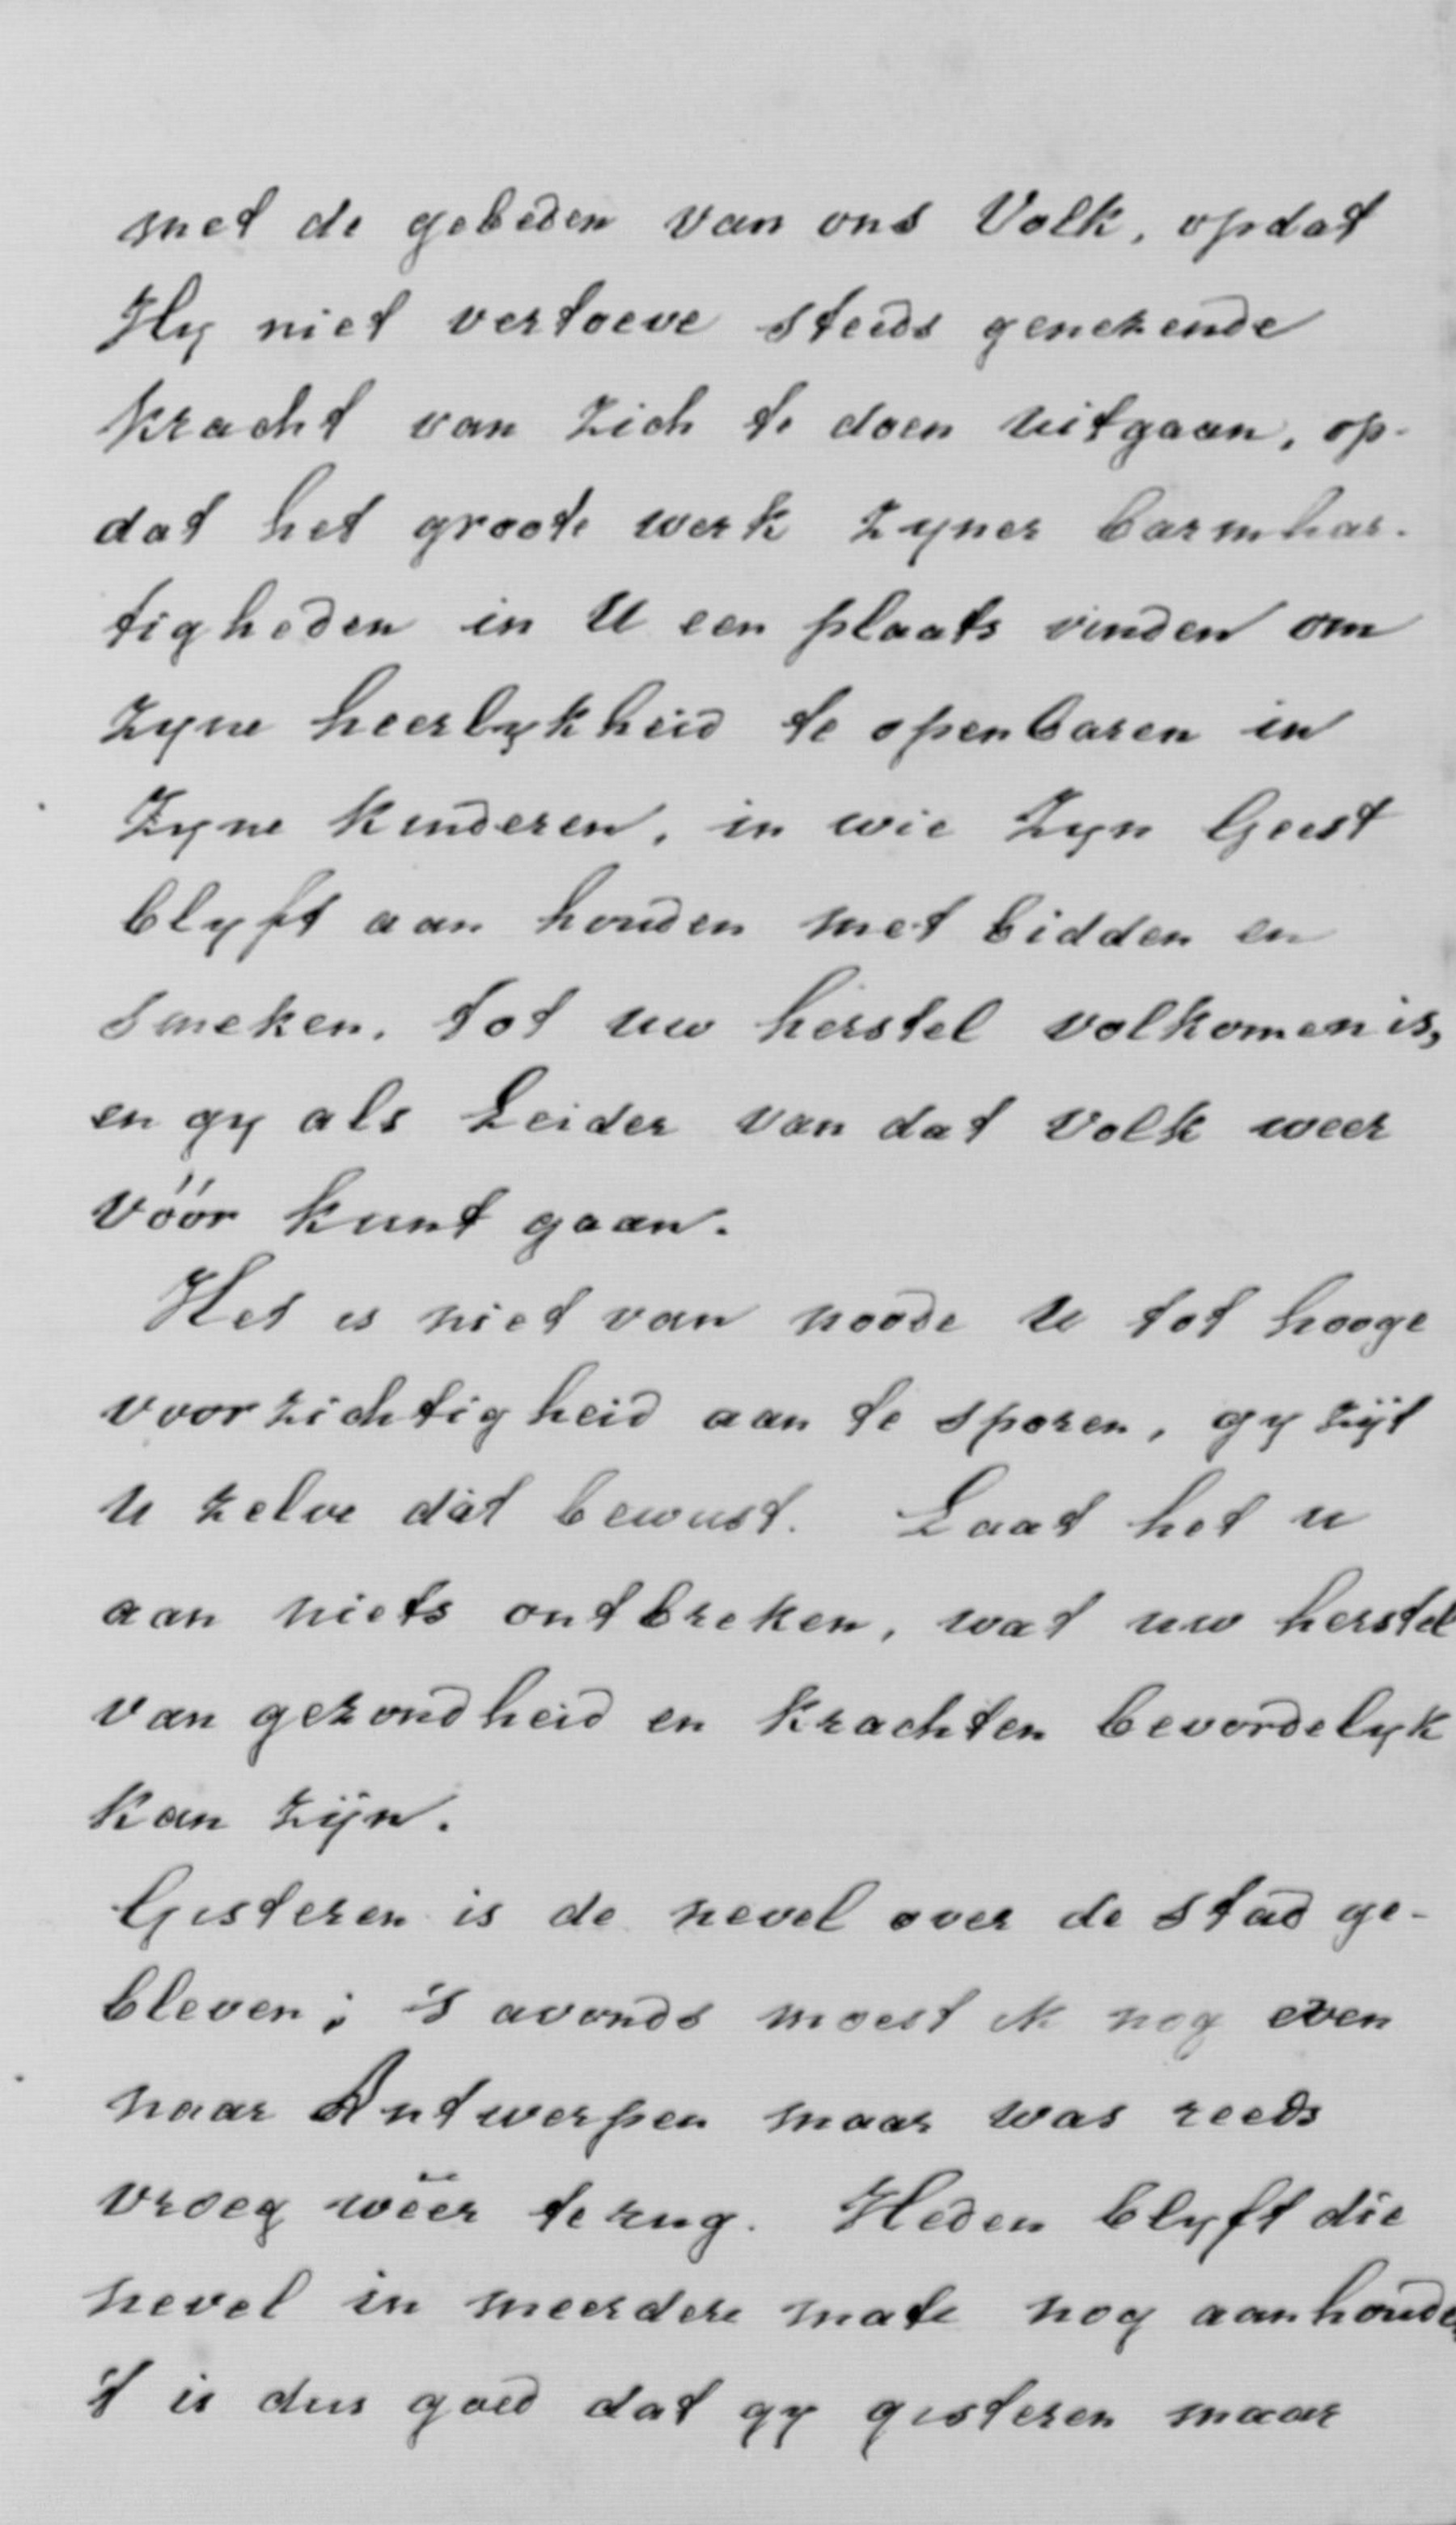 met de gebeden van ons Volk, opdat
Hy niet vertoeve steeds genezende
kracht van Zich te doen uitgaan, op-
dat het groote werk Zyner barmhar-
tigheden in U een plaats vinden om
Zyne heerlykheid te openbaren in
Zyne kinderen, in wie Zyn Geest
blyft aan houden met bidden en
smeken, tot uw herstel volkomen is,
en gy als Leider van dat Volk weer
vóór kunt gaan.
Het is niet van noode U tot hooge
voorzichtigheid aan te sporen, gy zijt
U zelve dàt bewust. Laat het u
aan niets ontbreken, wat uw herstel
van gezondheid en krachten bevordelyk
kan zijn.
Gisteren is de nevel over de stad ge-
bleven; 's avonds moest ik nog even
naar Antwerpen maar was reeds
vroeg wëer terug. Heden blyft die
nevel in meerdere mate nog aanhouden
't is dus goed dat gy gisteren maar